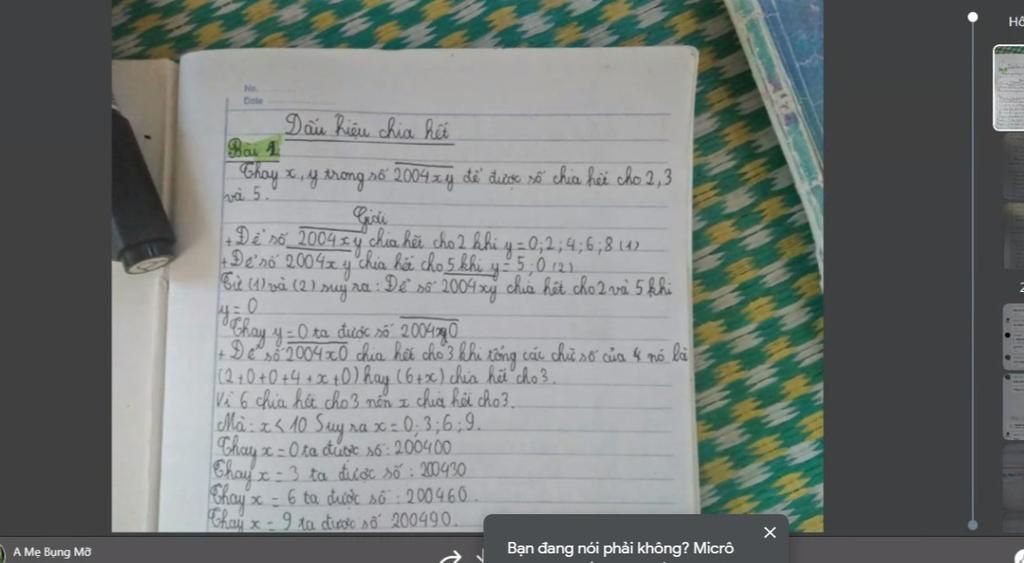 Hồ
No.
Date
Dấu hiệu chia hết
Bài 1
Thay x, y trong số 2004xy để được số chia hết cho 2, 3
và 5.
Giải
+ Để số 2004xy chia hết cho 2 khi y = 0; 2; 4; 6; 8 (1)
+ Để số 2004xy chia hết cho 5 khi y = 5; 0 (2)
Từ (1) và (2) suy ra: Để số 2004xy chia hết cho 2 và 5 khi
y = 0
Thay y = 0 ta được số 2004x0
+ Để số 2004x0 chia hết cho 3 khi tổng các chữ số của nó là
(2+0+0+4+x+0) hay (6+x) chia hết cho 3.
Vì 6 chia hết cho 3 nên x chia hết cho 3.
Mà: x < 10 Suy ra x = 0; 3; 6; 9.
Thay x = 0 ta được số: 200400
Thay x = 3 ta được số: 200430
Thay x = 6 ta được số: 200460.
Thay x = 9 ta được số 200490.
A Mẹ Bụng Mỡ
Bạn đang nói phải không? Micrô